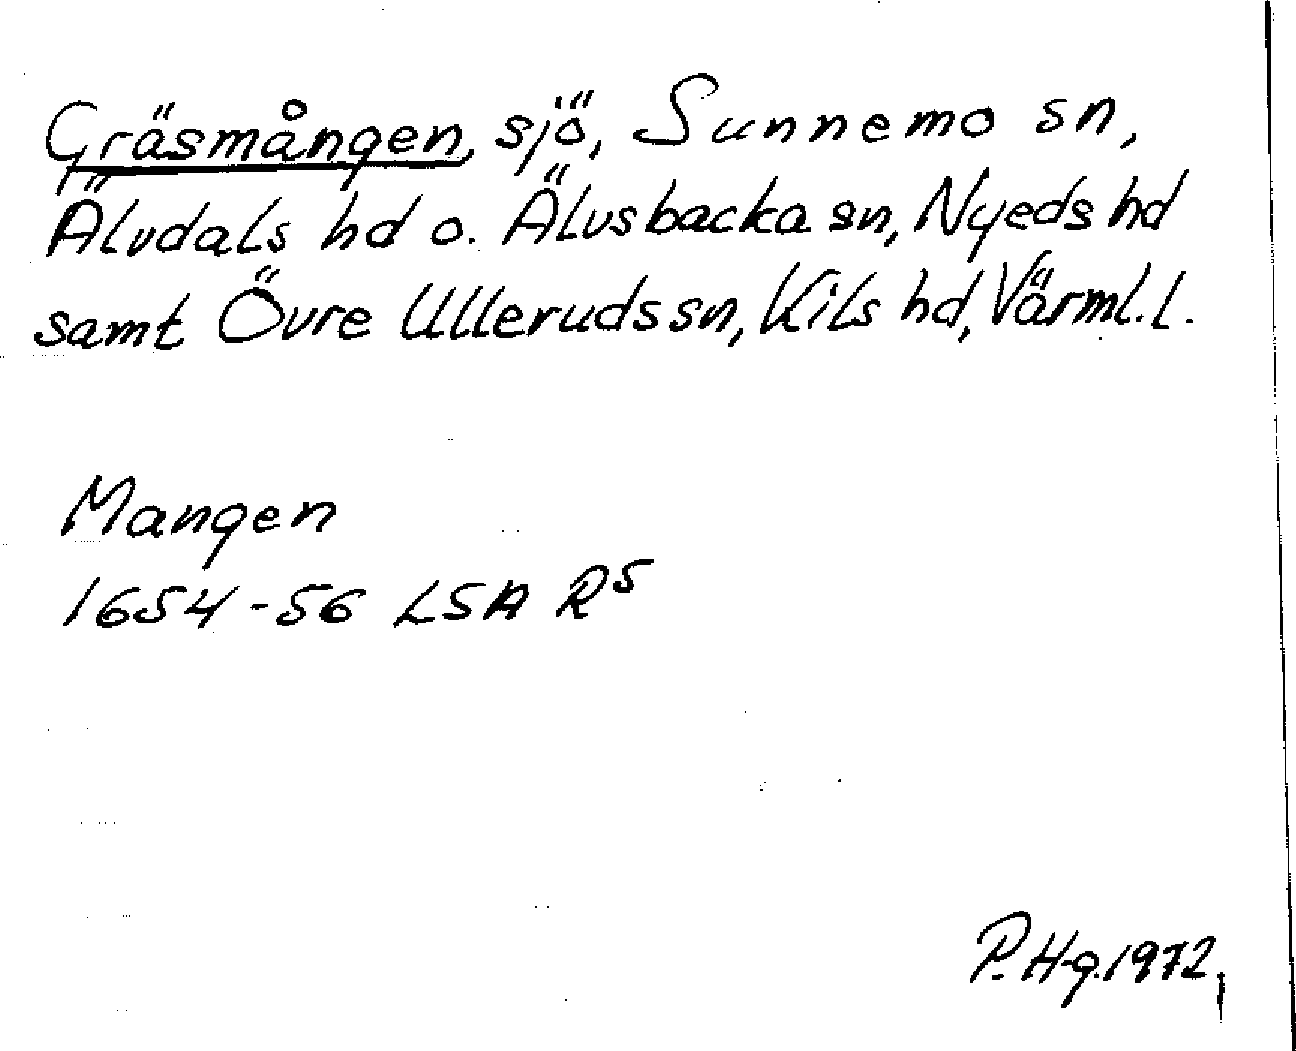 Gräsmången, sjö, Sunnemo sn,
Älvdals hd o. Älvsbacka sn, Nyeds hd
samt Övre Ulleruds sn, Kils hd, Värml. l.
Mangen
1654-56 LSA R⁵
P. Hg. 1972